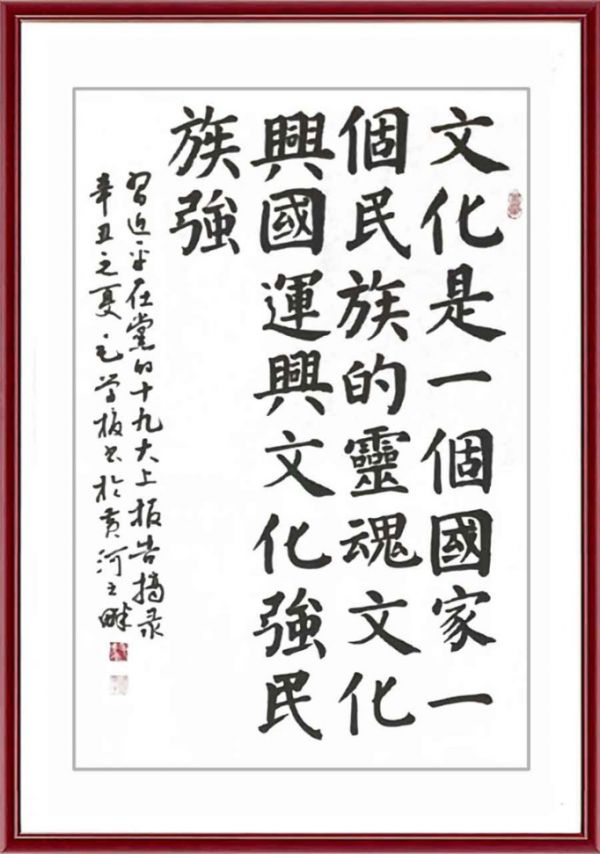 文化是一個國家一
個民族的靈魂文化
興國運興文化強民
族強
習近平在黨的十九大上报告摘录
辛丑之夏毛学板书於黄河之畔